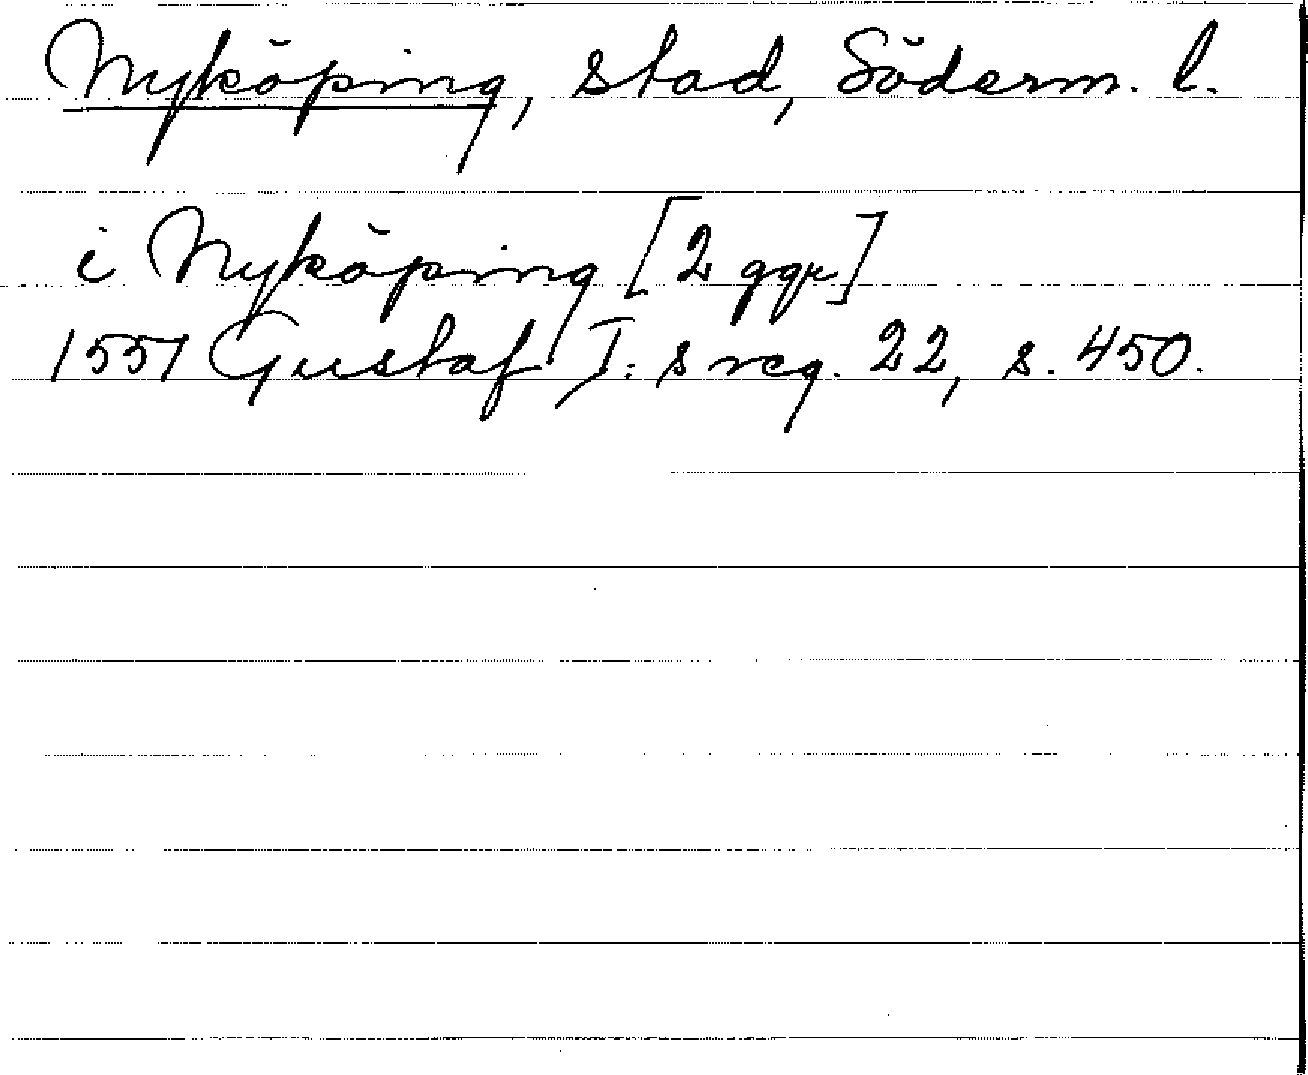 Nyköping, stad, Söderm. l.
i Nyköping [2 ggr]
1551 Gustaf I:s reg. 22, s. 450.